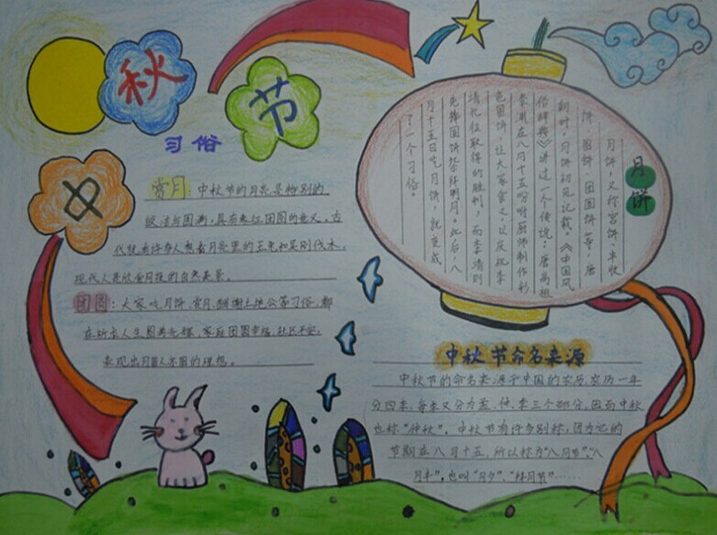 中
秋
节
习俗
赏月:中秋节的月亮是特别的
皎洁与圆满,具有象征团圆的意义。古
代就有许多人想着月亮里的玉兔和吴刚伐木,
现代人是欣赏月夜的自然美景。
团圆:大家吃月饼,赏月,
在祈求人生圆
表现出月圆人亦圆的理想。
月饼
月饼,又称宫饼、丰收
饼、圆饼、团圆饼等,唐
朝时,月饼初见记载。《中国风
俗辞典》讲过一个传说:唐高祖
李渊在八月十五吩咐厨师制作彩
色圆饼,让大家尝之,以庆祝李
靖
月十五日吃月饼,就变成
了一个习俗。
中秋节命名来源
中秋节的命名来源于中国的农历,农历一年
分四季,每季又分为孟、仲、季三个部分,因而中秋
也称“仲秋”。中秋节有许多别称:因为它的
节期在八月十五,所以称为“八月节”、“八
月半”,也叫“月夕”、